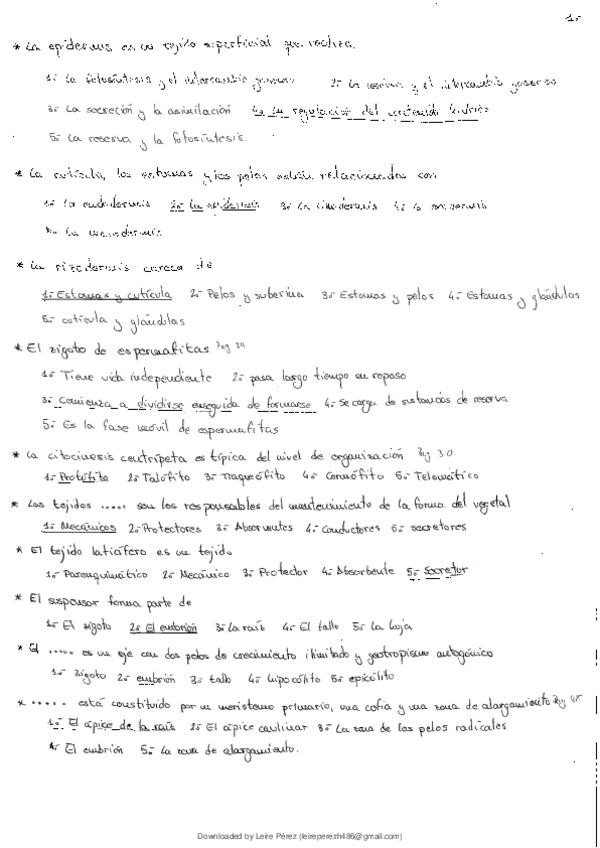 1.-
* La epidermis es un tejido superficial que realiza
1.- La fotosíntesis y el intercambio gaseoso 2.- La reserva y el intercambio gaseoso
3.- La secreción y la asimilación 4.- La regulación del contenido hídrico
5.- La reserva y la fotosíntesis.
* La cutícula, los estomas y los pelos están relacionados con
1.- La endodermis 2.- La epidermis 3.- La rizodermis 4.- la
5.- La
* La rizodermis carece de
1.- Estomas y cutícula 2.- Pelos y suberina 3.- Estomas y pelos 4.- Estomas y glándulas
5.- cutícula y glándulas
* El zigoto de espermafitas Pag 24
1.- Tiene vida independiente 2.- pasa largo tiempo en reposo
3.- Comienza a dividirse enseguida de formarse 4.- Se carga de sustancias de reserva
5.- Es la fase móvil de espermafitas
* La citocinesis centrípeta es típica del nivel de organización Pag 30
1.- Protófito 2.- Talófito 3.- Traqueófito 4.- Cormófito 5.- Telomático
* Los tejidos ..... son los responsables del mantenimiento de la forma del vegetal
1.- Mecánicos 2.- Protectores 3.- Absorventes 4.- Conductores 5.- secretores
* El tejido laticífero es un tejido
1.- Parenquimático 2.- Mecánico 3.- Protector 4.- Absorbente 5.- Secretor
* El suspensor forma parte de
1.- El zigoto 2.- El embrión 3.- La raíz 4.- El tallo 5.- La hoja
* El ..... es un eje con dos polos de crecimiento ilimitado y geotropismo antagónico
1.- zigoto 2.- embrión 3.- tallo 4.- hipocótilo 5.- epicótilo
* ..... está constituido por un meristemo primario, una cofia y una zona de alargamiento Pag 45
1.- El ápice de la raíz 2.- El ápice caulinar 3.- La zona de los pelos radicales
4.- El embrión 5.- La zona de alargamiento.
Downloaded by Leire Pérez (leireperezh486@gmail.com)